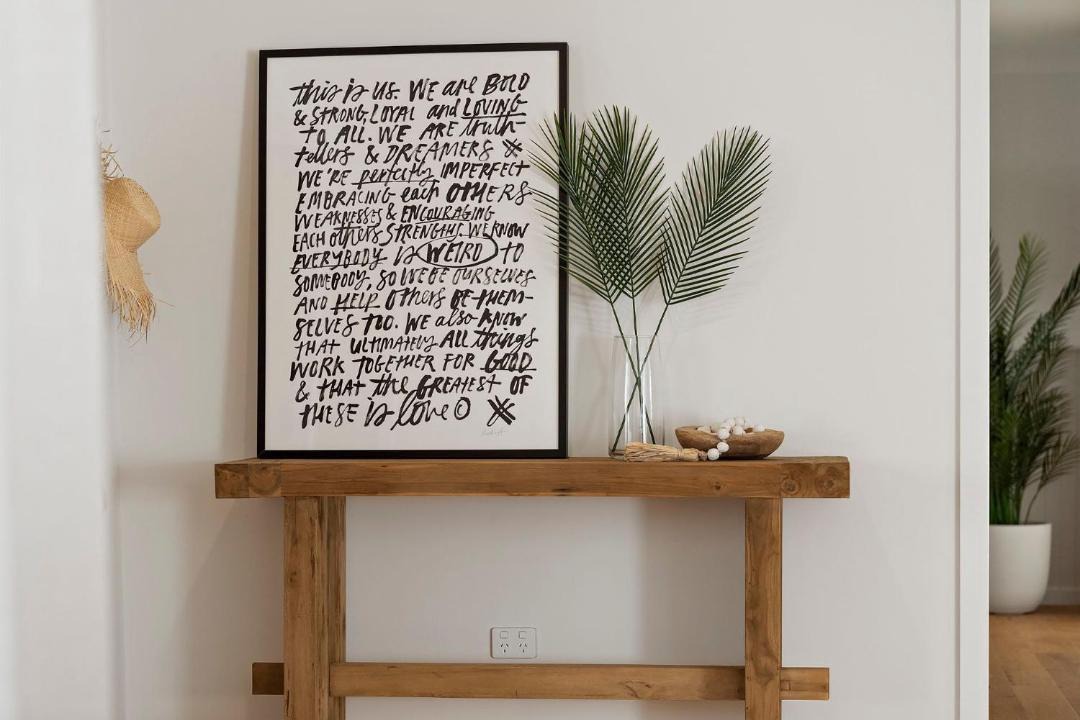 this is us. WE are BOLD
& STRONG, LOYAL and LOVING
TO ALL. WE ARE truth-
tellers & DREAMERS
WE'RE perfectly IMPERFECT
EMBRACING each OTHERS
WEAKNESSES & ENCOURAGING
EACH others STRENGTHS. WE KNOW
EVERYBODY is WEIRD TO
SOMEBODY, SO WE BE OURSELVES
AND HELP OTHERS BE THEM-
SELVES TOO. WE also know
THAT ULTIMATELY ALL things
WORK TOGETHER FOR GOOD
& THAT the GREATEST OF
THESE is love